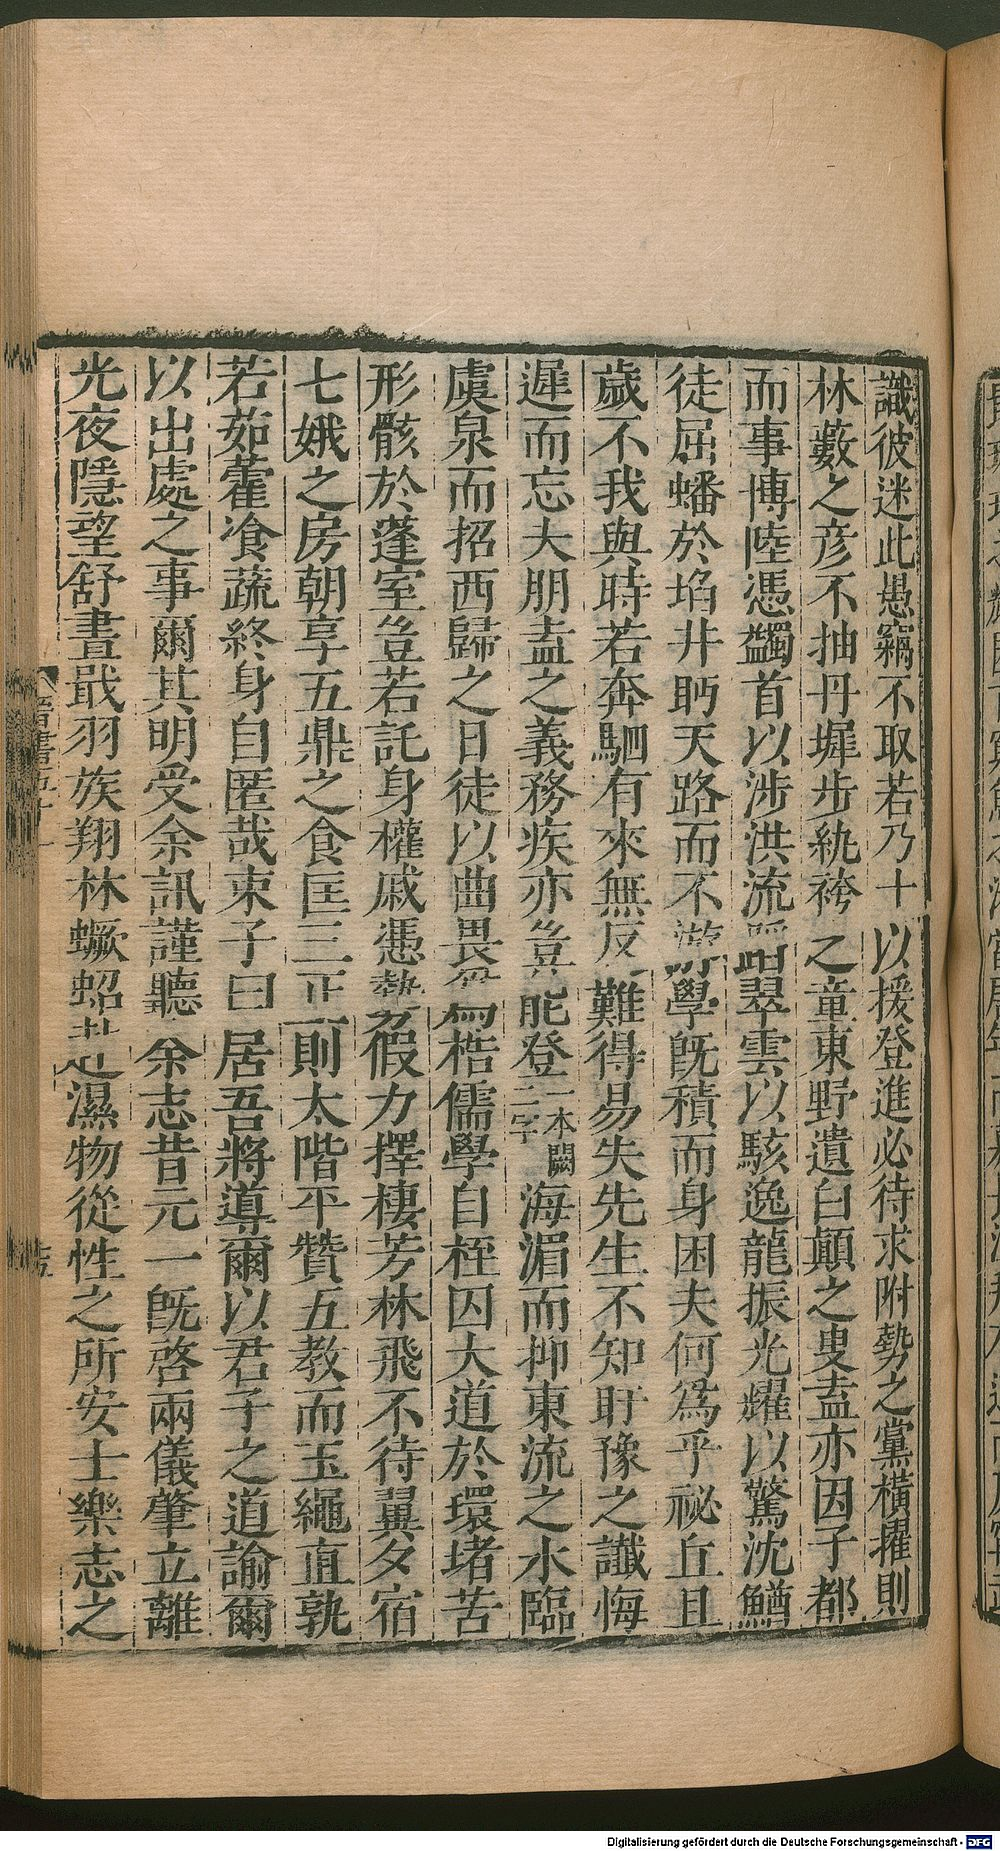 識彼迷此愚竊不取若乃十以援登進必待求附勢之黨橫擢則
林藪之彥不抽丹墀步紈袴之童東野遺白顚之叟盍亦因子都
而事博陸憑鷁首以涉洪流蹈翠雲以駭逸龍振光耀以驚沈鱒
徒屈蟠於埳井眄天路而不游學旣積而身困夫何爲乎祕丘且
歲不我與時若奔駟有來無反難得易失先生不知盱豫之讖悔
遲而忘夫朋盍之義務疾亦豈能登二字一本闕海湄而抑東流之水臨
虞泉而招西歸之日徒以曲畏爲梏儒學自桎囚大道於環堵苦
形骸於蓬室豈若託身權戚憑勢假力擇棲芳林飛不待翼夕宿
七娥之房朝享五鼎之食匡三正則太階平贊五教而玉繩直孰
若茹藿飡蔬終身自匿哉束子曰居吾將導爾以君子之道諭爾
以出處之事爾其明受余訊謹聽余志昔元一旣啓兩儀肇立離
光夜隱望舒晝戢羽族翔林蟩蛁赴濕物從性之所安士樂志之
晉書五十一
Digitalisierung gefördert durch die Deutsche Forschungsgemeinschaft - DFG